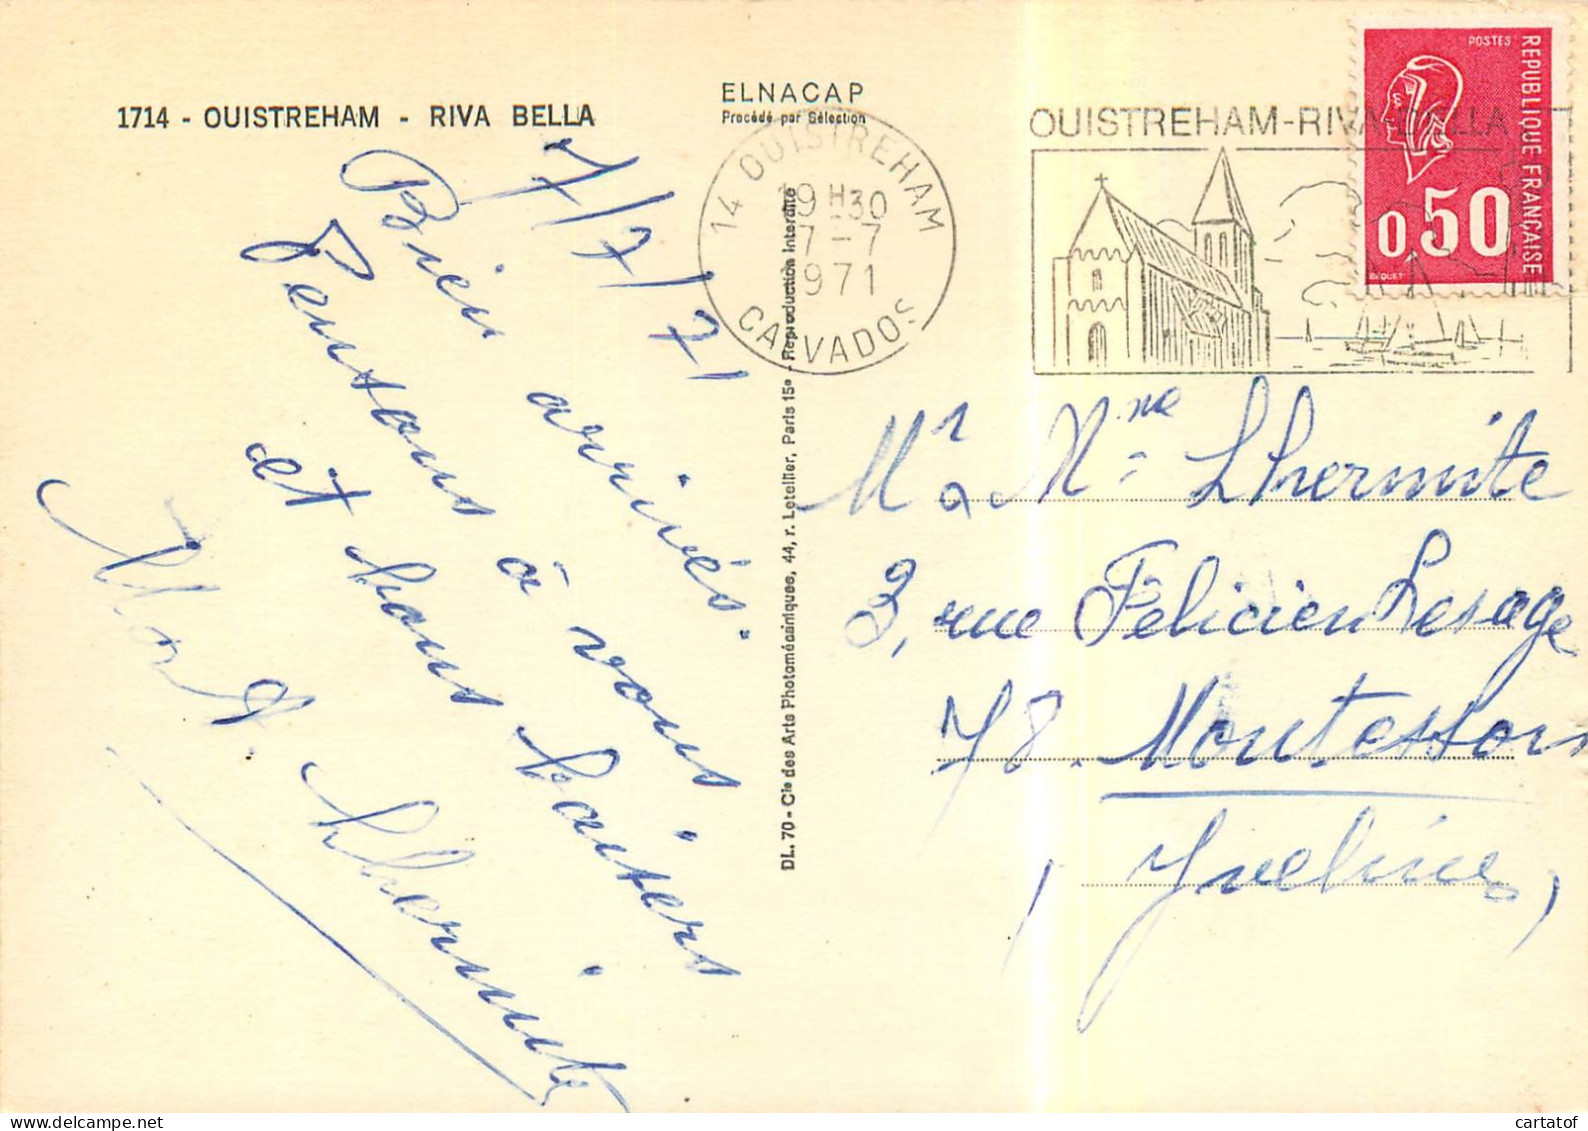 1714 - OUISTREHAM - RIVA BELLA
ELNACAP
Procédé par Sélection
7/7/71
Bien arrivés.
Pensons à vous
et bons baisers
M. et A. Lhermite
DL. 70 - Cie des Arts Photomécaniques, 44, r. Letellier, Paris 15e - Reproduction interdite
14 OUISTREHAM
19 H 30
7 - 7
1971
CALVADOS
OUISTREHAM-RIVA-BELLA
POSTES
REPUBLIQUE FRANÇAISE
0,50
BEQUET
Mr & Mme Lhermite
3, rue Félicien Lesage
78. Montesson
(Yvelines)
cartatof